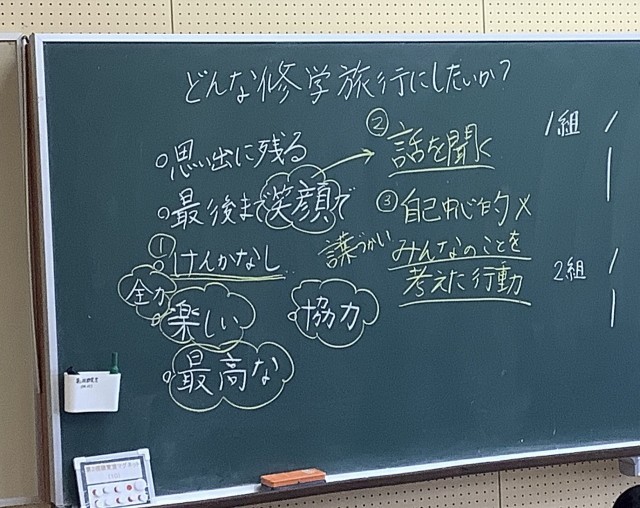 どんな修学旅行にしたいか?
○思い出に残る
○最後まで笑顔で
①
○けんかなし
全力
○楽しい
○協力
○最高な
②
話を聞く
③自己中心的×
言葉づかい
みんなのことを
考えた行動
1組
2組